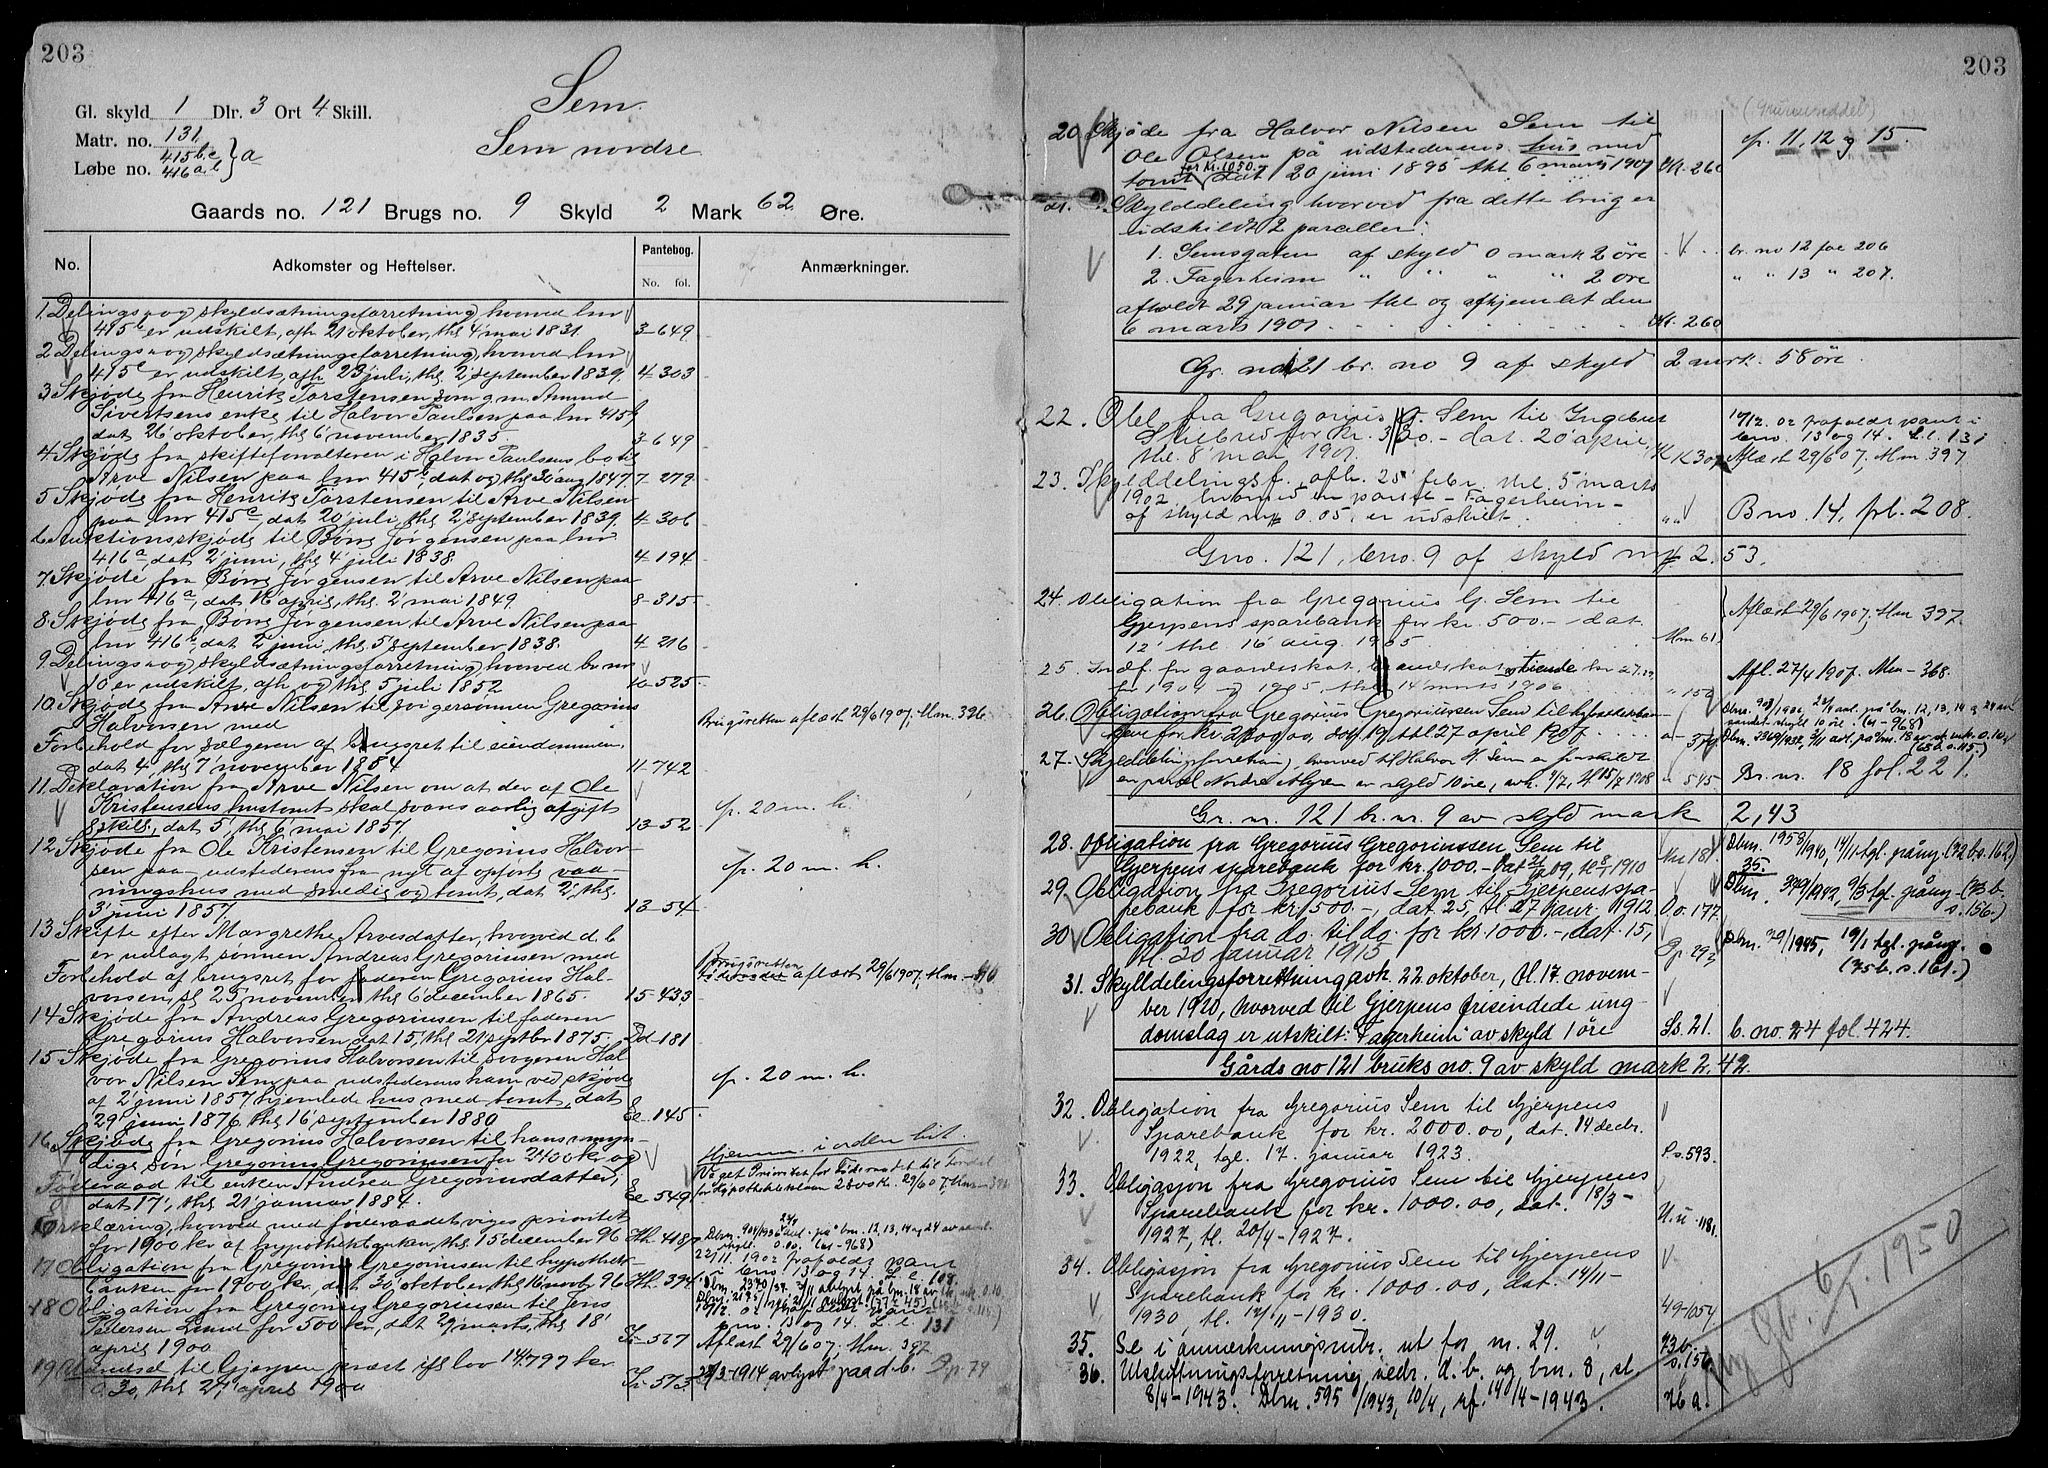 203
Gl. skyld 1 Dlr. 3 Ort 4 Skill.
Sem.
Matr. no. 131
Sem nordre
Løbe no. 415 b c 416 a b } a
Gaards no. 121 Brugs no. 9 Skyld 2 Mark 62 Øre.
No. Adkomster og Heftelser. Pantebog. No. fol. Anmærkninger.
1 Delings- og skyldsætningsforretning, hvorved lnr
415 er udskilt, afh 21 oktober, thl 4 mai 1831 3-649
2 Delings- og skyldsætningsforretning, hvorved lnr
415 er udskilt, afh 23 juli, thl 2 september 1839. 4-303
3 Skjøde fra Henrik Torstensen som g.m. Amund
Sivertsens enke til Halvor Paulsen paa lnr 415 b
dat 26 oktober, thl 6 november 1835. 3-649
4 Skjøde fra skifteforvalteren i Halvor Paulsens bo til
Arve Nilsen paa lnr 415 b, dat og thl 30 aug 1847 7-279
5 Skjøde fra Henrik Torstensen til Arve Nilsen
paa lnr 415 c, dat 20 juli, thl 2 september 1839. 4-306
6 Auktionsskjøde til Børre Jørgensen paa lnr
416 a, dat 2 juni, thl 4 juli 1838. 4-194
7. Skjøde fra Børre Jørgensen til Arve Nilsen paa
lnr 416 a, dat 16 april, thl 2 mai 1849. 8-315
8. Skjøde fra Børre Jørgensen til Arve Nilsen paa
lnr 416 b, dat 2 juni, thl 5 september 1838. 4-216
9. Delings- og skyldsætningsforretning, hvorved br no
10 er udskilt, afh og thl 5 juli 1852 10-525
10 Skjøde fra Arve Nilsen til svigersønnen Gregorius
Halvorsen med Brugsretten aflæst 29/6 1907, Mm. 396
Forbehold for sælgeren af brugsret til eiendommen,
dat 4, thl 7 november 1854 11-742
11. Deklaration fra Arve Nilsen om at der af Ole
Kristensens hustomt skal svares aarlig afgift
skill., dat 5, thl 6 mai 1857. 13-52 cfr. 20 m. h.
12 Skjøde fra Ole Kristensen til Gregorius Halvor-
sen paa udstederens fra nyt af opførte vaa-
ningshus med smedie og tomt, dat 2, thl
3 juni 1857. 13-54 cfr. 20 m. h.
13 Skifte efter Margrethe Arvesdatter, hvorved d. b.
er udlagt sønnen Andreas Gregoriusen med
Forbehold af brugsret for faderen Gregorius Hal-
vorsen, sl 25 november thl 6 december 1865. 15-433 Brugsretten aflæst 29/6 1907, Mm.
14 Skjøde fra Andreas Gregoriusen til faderen
Gregorius Halvorsen dat 15, thl 21 septbr 1875. Dd-181
15 Skjøde fra Gregorius Halvorsen til svogeren Hal-
vor Nilsen Sem paa udstederens ham ved skjøde
af 2 juni 1857 hjemlede hus med tomt, dat
29 juni 1876 thl 16 september 1880 Ee. 145 cfr. 20 m. h.
16 Skjøde fra Gregorius Halvorsen til hans myn-
dige søn Gregorius Gregoriussen for 2400 kr og
Føderaad til enken Andrea Gregoriusdatter,
dat 17, thl 21 januar 1884. Ee 549
Hjemm. i orden hit.
Veget Prioritet for Føderaadet til Fordel
for Hypothekbanken 2800 kr. 29/6 07, Mm
Erklæring, hvorved med føderaadet viges prioritet
for 1900 kr af hypothekbanken, thl 15 december 96 Hh. 418
Dbnr. 904/1936 avl. på bnr. 12, 13, 14 og 24 av saml.
skyld 0.10. (61-968)
17 Obligation fra Gregorius Gregoriussen til hypothek-
banken for 1900 kr, dat 30 oktober thl 16 novbr 96 Hh. 394
22/11. 1902 frafaldt pant
i bno 13 og 14. L. l. 108
18 Obligation fra Gregorius Gregoriussen til Jens
Pedersen Lund for 500 kr, dat 29 marts, thl 18
april 1900 Ii-567
pno. 13 og 14. L. l. 131
Aflæst 29/6 07. Mm. 397
19 Utmidsel til Gjerpen præst ifl lov 14.797 kr
0.30, thl 27 april 1900 Ii-573 28/3-1914 avlyst paa d.b. Pp 79
203
(grunnseddel)
20. Skjøde fra Halvor Nilsen Sem til
Ole Olsen på udstederens hus med
tomt for kr. 1050. dat 20 juni 1895 thl 6 marts 1901 Kk. 260 cfr. 11, 12 og 15.
21. Skylddeling hvorved fra dette brug er
udskildt 2 parceller:
1. Semsgaten af skyld 0 mark 2 øre br. no 12 foe 206
2. Fagerheim " " " " 2 øre " " 13 " 207.
afholdt 29 januar thl og afhjemlet den
6 marts 1901. Kk. 260
Gr. no 121 br. no 9 af skyld 2 mrk. 58 øre.
22. Obl. fra Gregorius G. Sem til Ingebret
Stiebred for kr. 330.- dat. 20 april,
thl. 8 mai 1901. Kk 307
10/12. 02 frafaldt pant i
bno. 13 og 14. L. l. 131
Aflæst 29/6 07, Mm. 397
23. Skylddelingsf., afh. 25 febr. thl. 5 marts
1902, hvorved en parcel - Fagerheim -
af skyld mk 0.05. er udskilt. Bno. 14, fol. 208.
Gno. 121, bno. 9 af skyld mk 2.53.
24. Obligation fra Gregorius G. Sem til
Gjerpens sparebank for kr. 500.- dat.
12 thl 16 aug. 1905. Mm 61. Aflæst 29/6 1907, Mm 397.
25. Indf. for gaardsskat, brandskat tiende kr 27.29
for 1904 og 1905, thl 14 marts 1906 " 152 Afl. 27/4 1907. Mm - 368.
26. Obligation fra Gregorius Gregoriussen Sem til hypothekban-
ken for kr 2800.00, dat 19 thl 27 april 1907. - 379
Dbnr. 904/1936, avl. på bnr. 12, 13, 14 og 24 av
samlet skyld 10 øre. (61-968)
27. Skylddelingsforretning, hvorved til Halvor N. Sem er fraskildt
en parcel Nordre Myren av skyld 10 øre, avh. 7/7, tl 15/7 1908 " 545 Br. nr. 18 fol. 221.
Gr. nr. 121 br. nr. 9 av skyld mark 2,43
28. Obligation fra Gregorius Gregoriussen Sem til
Gjerpens sparebank for kr. 1000.- dat 09, tl 1910 Nn 181
Dbnr. 1958/1940, 14/11 tgl. pång. (72 b s. 162.)
35.
29. Obligation fra Gregorius Sem til Gjerpens spa-
rebank for kr 1500.-, dat. 25, tl. 27 janr. 1912. Oo. 177
Dbnr. 379/1942, 9/3 tgl. pång - (73 b s. 156.)
30 Obligation fra do. til do. for kr. 1000.-, dat. 15,
tl. 20 januar 1915 Pp. 292
Dbnr. 29/1945, 19/1 tgl. pång.
(75 b. s. 161.)
31. Skylldelingsforretning avh. 22. oktober, tl. 17. novem-
ber 1920, hvorved til Gjerpens frisindede ung-
domslag er utskilt: "Fagerheim" av skyld 1 øre Ss. 21. b. no. 24 fol 424.
Gårds no 121 bruks no. 9 av skyld mark 2.42.
32. Obligation fra Gregorius Sem til Gjerpens
Sparebank for kr. 2000.00, dat. 14 decbr.
1922, tgl. 17. januar 1923. Ss. 593.
33. Obligasjon fra Gregorius Sem til Gjerpens
Sparebank for kr. 1000.00, dat. 18/3-
1927, tl. 20/4-1927. U.u. 1181.
34. Obligasjon fra Gregorius Sem til Gjerpens
Sparebank for kr. 1000.00, dat. 14/11-
1930, tl. 17/11-1930. 49-1054.
35. Se i anmerkningsrubr. ut for nr. 29. 73 b. s. 156.
36. Utskiftningsforretning vedr. d. b. og bnr. 8, sl.
8/4-1943. Dbnr. 595/1943, 10/4, af. 14/4-1943. 76 a.
Ny gb. 6/1. 1950